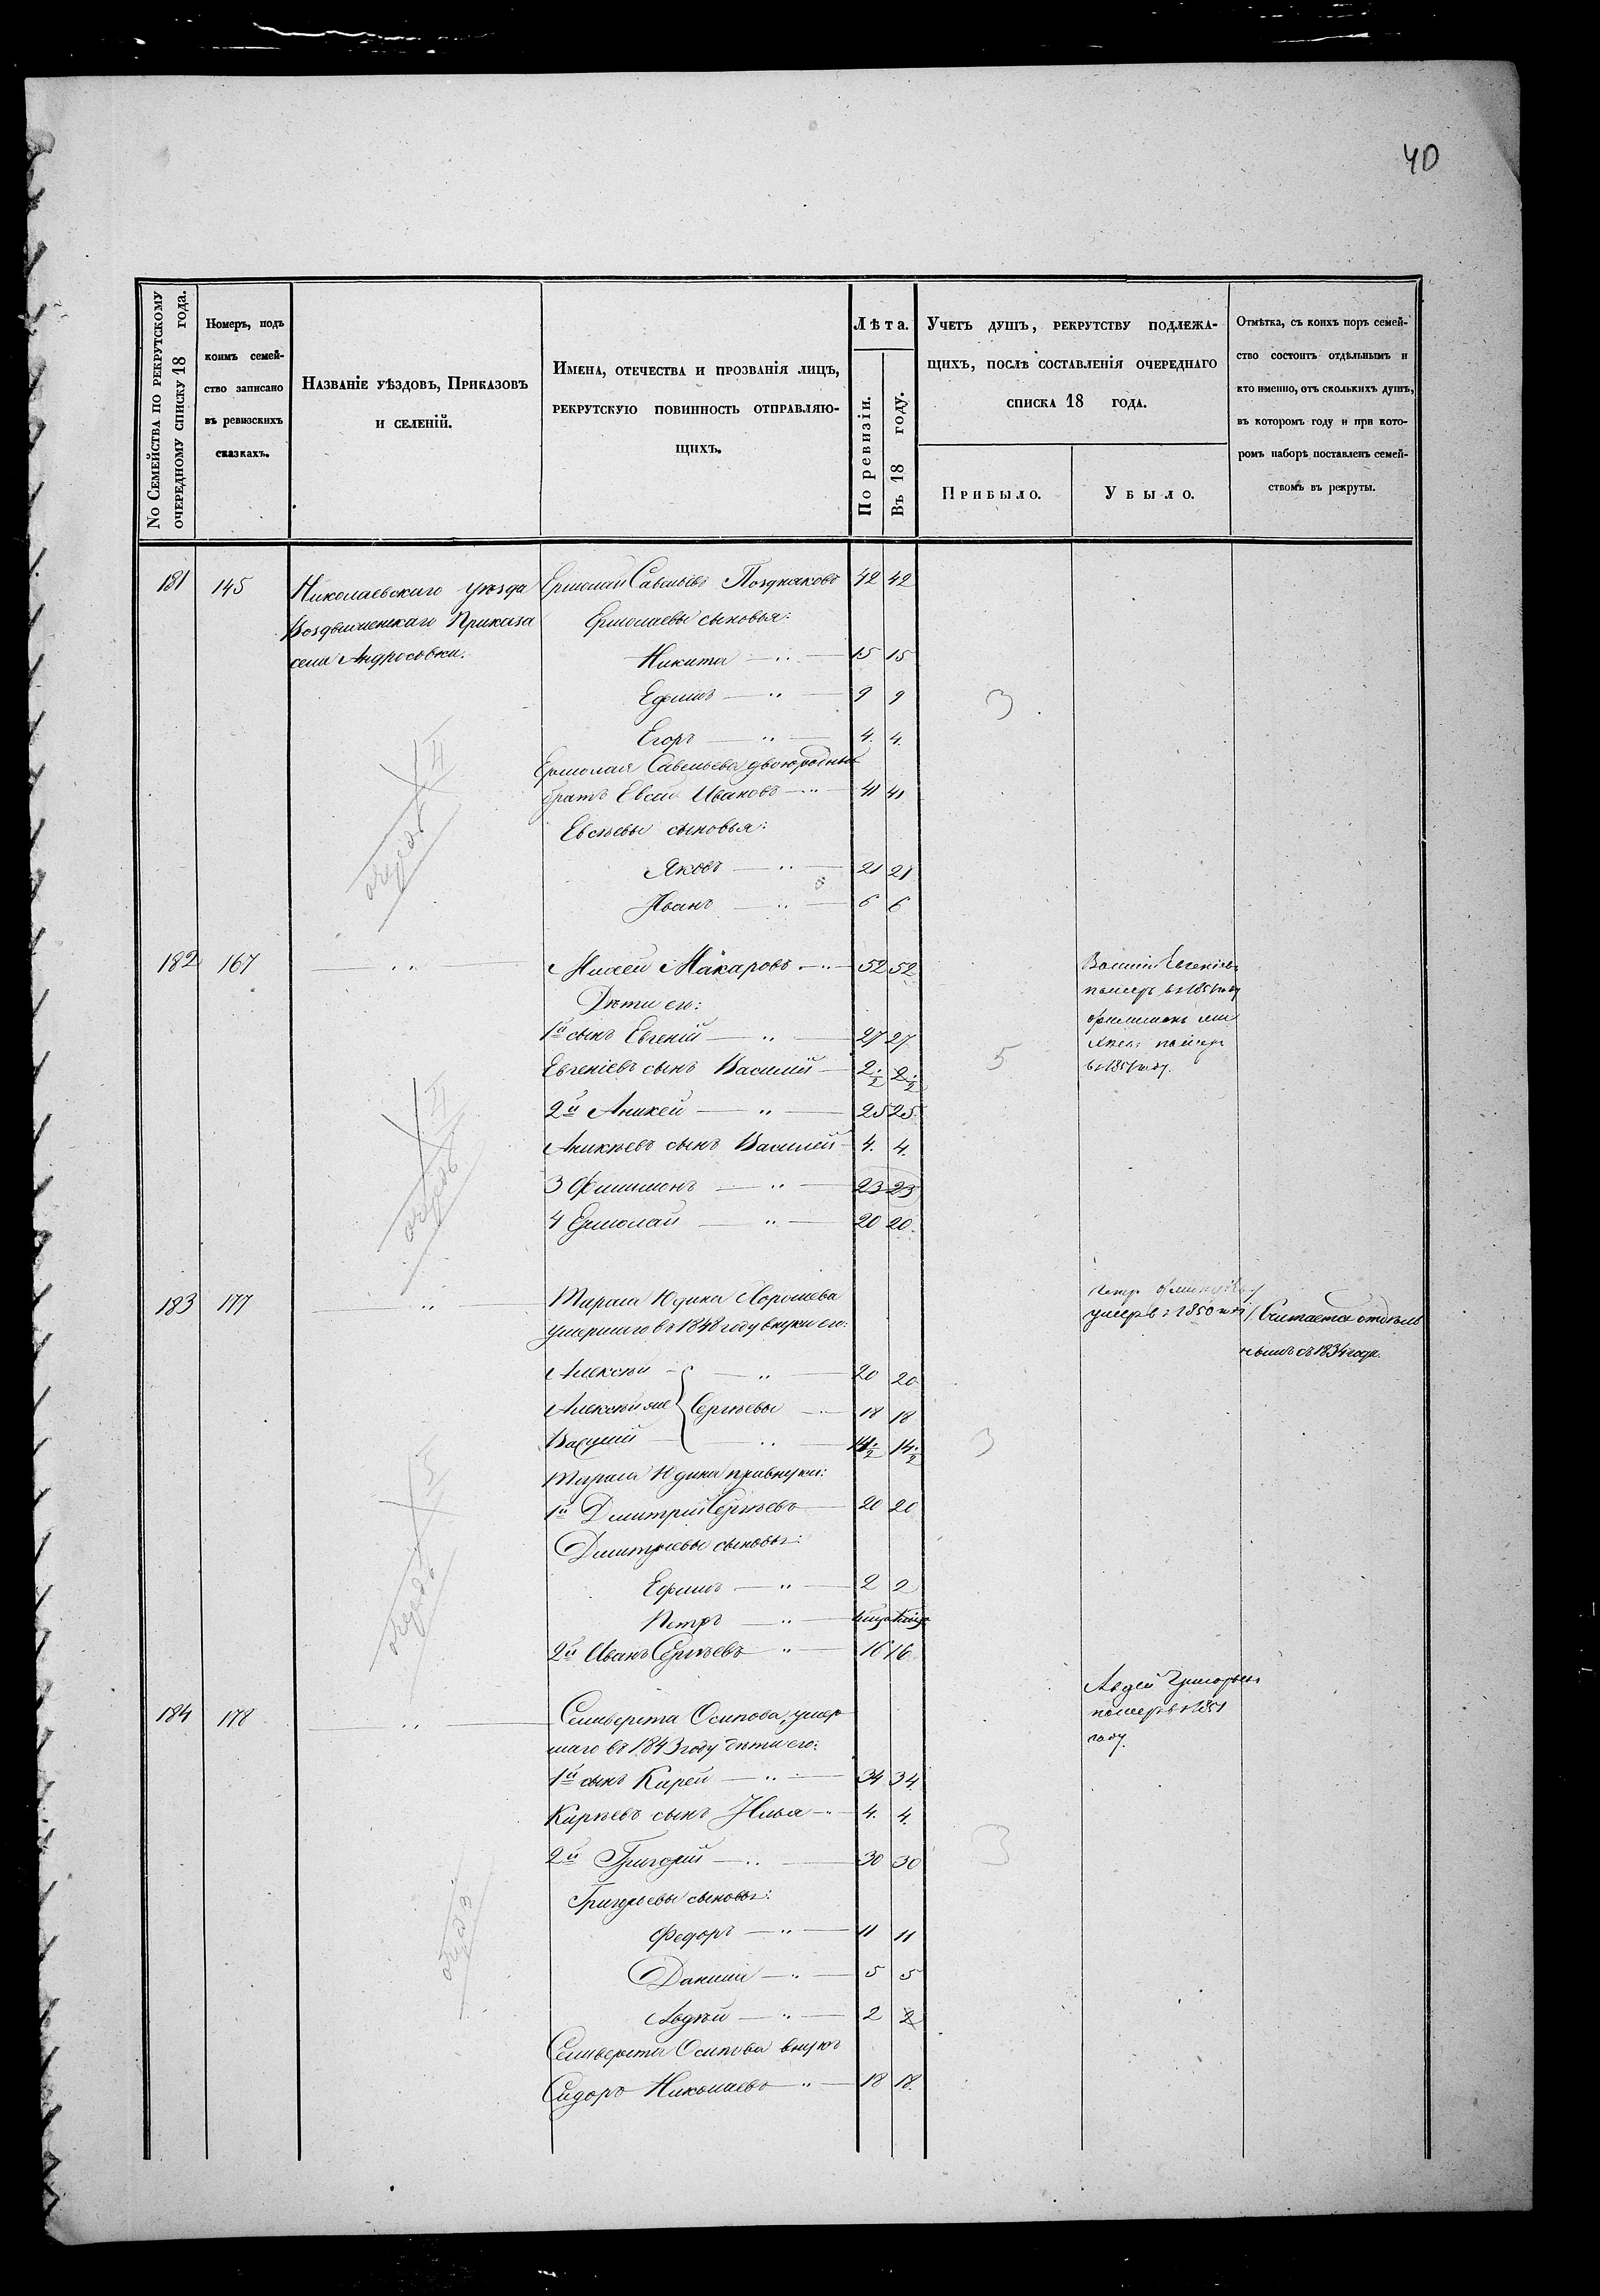 40
No Семейства по рекрутскому очередному списку 18 года.
Номеръ, подъ коимъ семейство записано въ ревизскихъ сказкахъ.
Названіе уѣздовъ, Приказовъ и селеній.
Имена, отечества и прозванія лицъ, рекрутскую повинность отправляющихъ.
Лѣта.
По ревизіи.
Въ 18 году.
Учетъ душъ, рекрутству подлежащихъ, послѣ составленія очереднаго списка 18 года.
Прибыло.
Убыло.
Отмѣтка, съ коихъ поръ семейство состоитъ отдѣльнымъ и кто именно, отъ сколькихъ душъ, въ которомъ году и при которомъ наборѣ поставленъ семействомъ въ рекруты.
181 145 Николаевскаго уѣзда Ермолай Савельевъ Поздняковъ 42 42
Воздвиженскаго Приказа Ермолаевы сыновья:
села Андросовки. Никита 15 15
Ефимъ 9 9 3
Егоръ 4. 4.
Ермолая Савельева двоюродный
братъ Евсей Ивановъ 41 41
Евсѣевы сыновья:
Яковъ 21 21
Иванъ 6 6
182 167 Михей Макаровъ 52 52
Дѣти его:
1й сынъ Евгеній 27 27
Евгеніевъ сынъ Василій 2 ½ 2 ½ 5
2й Аникей 25 25
Аникѣевъ сынъ Василей 4. 4.
3 Филимонъ 23 23
4 Ермолай 20 20
померъ въ 1851 году
въ 1851 году.
183 177 Тараса Юдина Хорошева
умершаго въ 1848 году внуки его:
Алексѣй 20 20
Алексѣй же Сергѣевы 18 18
Василій 14 ½ 14 ½ 3
Тараса Юдина правнуки:
1й Дмитрій Сергѣевъ 20 20
Дмитріевы сыновья:
Ефимъ 2 2
Петръ
2й Иванъ Сергѣевъ 16 16
умеръ въ 1850 году
Считается отдѣль
нымъ съ 1834 года.
184 178 Селиверста Осипова умер
шаго въ 1843 году дѣти его:
1й сынъ Кирей 34 34
Кирѣевъ сынъ Илья 4. 4.
2й Григорій 30 30 3
Григорьевы сыновья:
Федоръ 11 11
Данила 5 5
Авдѣй 2 2
Селиверста Осипова внукъ
Сидоръ Николаевъ 18 18
Авдей Григорьевъ
померъ въ 1851
году.